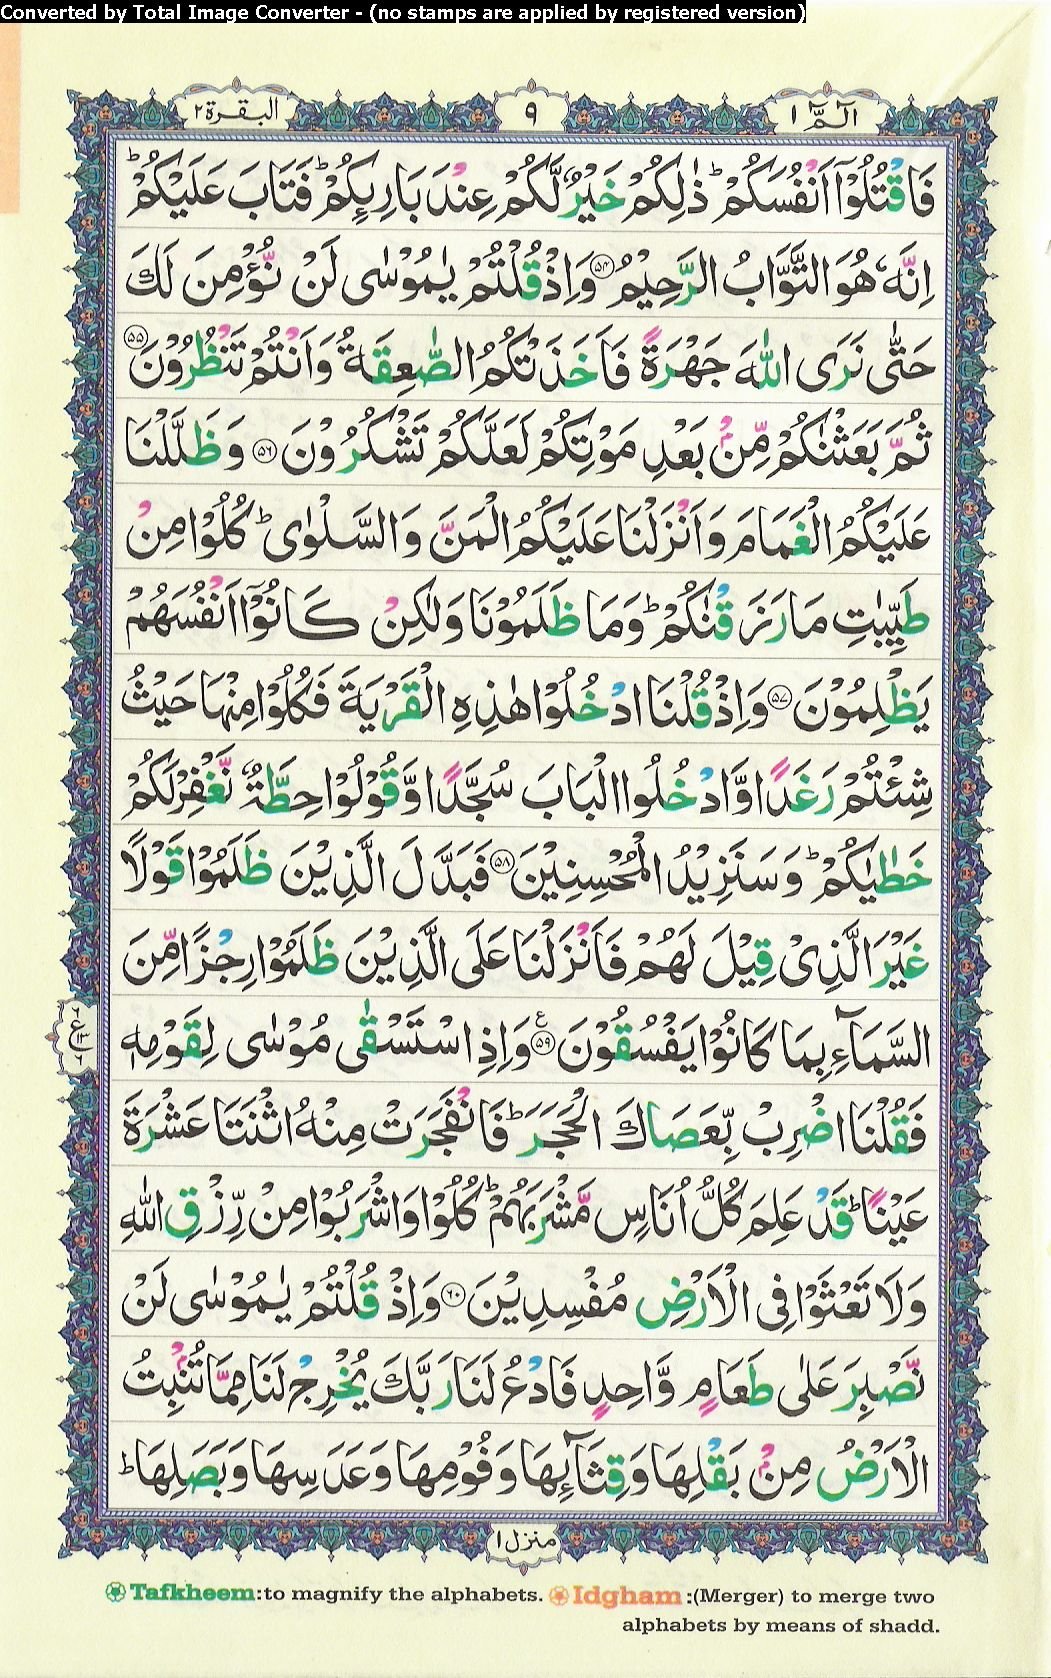 Converted by Total Image Converter - (no stamps are applied by registered version)
البقرة ٢
٩
الٓمّٓ ١
فَاقْتُلُوْٓا اَنْفُسَكُمْ ؕ ذٰلِكُمْ خَيْرٌ لَّكُمْ عِنْدَ بَارِىِٕكُمْ ؕ فَتَابَ عَلَيْكُمْ ؕ
اِنَّهٗ هُوَ التَّوَّابُ الرَّحِيْمُ ﴿۵۴﴾ وَاِذْ قُلْتُمْ يٰمُوْسٰى لَنْ نُّؤْمِنَ لَكَ
حَتّٰى نَرَى اللّٰهَ جَهْرَةً فَاَخَذَتْكُمُ الصّٰعِقَةُ وَاَنْتُمْ تَنْظُرُوْنَ ﴿۵۵﴾
ثُمَّ بَعَثْنٰكُمْ مِّنْۢ بَعْدِ مَوْتِكُمْ لَعَلَّكُمْ تَشْكُرُوْنَ ﴿۵۶﴾ وَظَلَّلْنَا
عَلَيْكُمُ الْغَمَامَ وَاَنْزَلْنَا عَلَيْكُمُ الْمَنَّ وَالسَّلْوٰى ؕ كُلُوْا مِنْ
طَيِّبٰتِ مَا رَزَقْنٰكُمْ ؕ وَمَا ظَلَمُوْنَا وَلٰكِنْ كَانُوْٓا اَنْفُسَهُمْ
يَظْلِمُوْنَ ﴿۵۷﴾ وَاِذْ قُلْنَا ادْخُلُوْا هٰذِهِ الْقَرْيَةَ فَكُلُوْا مِنْهَا حَيْثُ
شِئْتُمْ رَغَدًا وَّادْخُلُوا الْبَابَ سُجَّدًا وَّقُوْلُوْا حِطَّةٌ نَّغْفِرْ لَكُمْ
خَطٰيٰكُمْ ؕ وَسَنَزِيْدُ الْمُحْسِنِيْنَ ﴿۵۸﴾ فَبَدَّلَ الَّذِيْنَ ظَلَمُوْا قَوْلًا
غَيْرَ الَّذِىْ قِيْلَ لَهُمْ فَاَنْزَلْنَا عَلَى الَّذِيْنَ ظَلَمُوْا رِجْزًا مِّنَ
السَّمَآءِ بِمَا كَانُوْا يَفْسُقُوْنَ ﴿۵۹﴾ وَاِذِ اسْتَسْقٰى مُوْسٰى لِقَوْمِهٖ
فَقُلْنَا اضْرِبْ بِّعَصَاكَ الْحَجَرَ ؕ فَانْفَجَرَتْ مِنْهُ اثْنَتَا عَشْرَةَ
عَيْنًا ؕ قَدْ عَلِمَ كُلُّ اُنَاسٍ مَّشْرَبَهُمْ ؕ كُلُوْا وَاشْرَبُوْا مِنْ رِّزْقِ اللّٰهِ
وَلَا تَعْثَوْا فِى الْاَرْضِ مُفْسِدِيْنَ ﴿۶۰﴾ وَاِذْ قُلْتُمْ يٰمُوْسٰى لَنْ
نَّصْبِرَ عَلٰى طَعَامٍ وَّاحِدٍ فَادْعُ لَنَا رَبَّكَ يُخْرِجْ لَنَا مِمَّا تُنْۢبِتُ
الْاَرْضُ مِنْۢ بَقْلِهَا وَقِثَّآىِٕهَا وَفُوْمِهَا وَعَدَسِهَا وَبَصَلِهَا ؕ
منزل ١
Tafkheem:to magnify the alphabets. Idgham :(Merger) to merge two
alphabets by means of shadd.